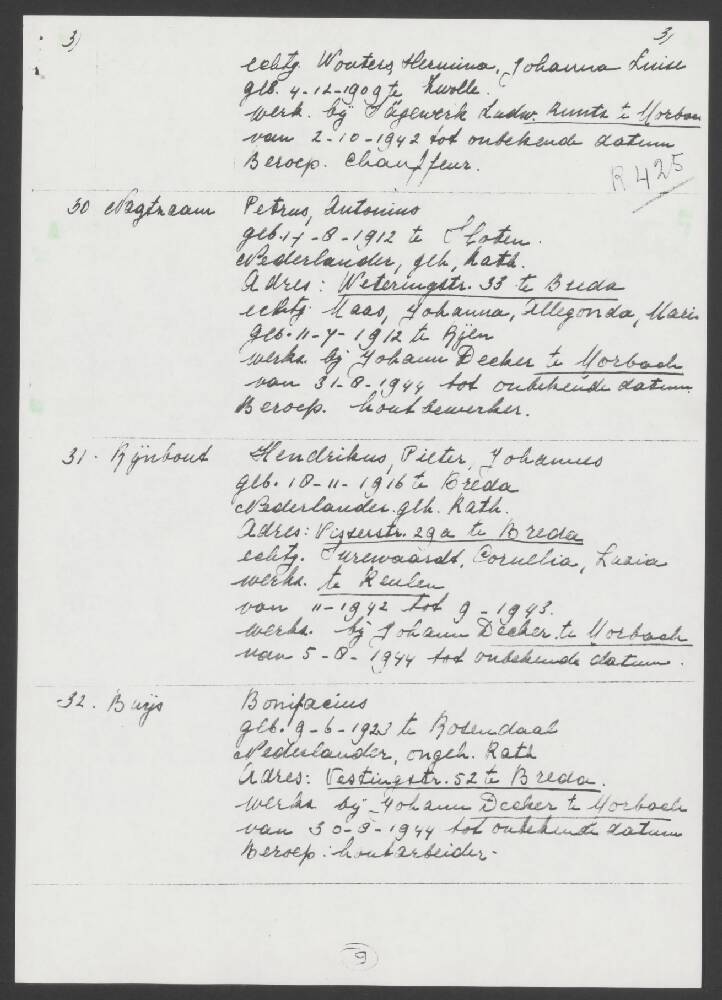 3)
3)
echtg. Wouters, Hermina, Johanna Luise
geb. 4-12-1909 te Zwolle.
werk. bij Sägewerk Ludw. Kuntz te Morbach
van 2-10-1942 tot onbekende datum
Beroep. Chauffeur.
R 425
30 Nagtzaam Petrus, Antonius
geb. 17-8-1912 te Sloten.
Nederlander, geh, Kath.
Adres: Weteringstr. 33 te Breda
echtg. Maas, Johanna, Allegonda, Maria
geb. 11-7-1912 te Rijen
werkz. bij Johann Decker te Morbach
van 31-8-1944 tot onbekende datum.
Beroep. houtbewerker.
31. Rijnhout Hendrikus, Pieter, Johannes
geb. 18-11-1916 te Breda
Nederlander. geh. Kath.
Adres: Visserstr. 29a te Breda
echtg. Surewaardt, Cornellia, Luzia
werkz. te Keulen
van 11-1942 tot 9-1943.
werkz. bij Johann Decker te Morbach
van 5-8-1944 tot onbekende datum.
32. Buijs Bonifacius
geb. 9-6-1923 te Rosendaal
Nederlander, ongeh. Kath
Adres: Vestingstr. 52 te Breda.
werkz bij Johann Decker te Morbach
van 30-8-1944 tot onbekende datum
Beroep: houtarbeider-
9